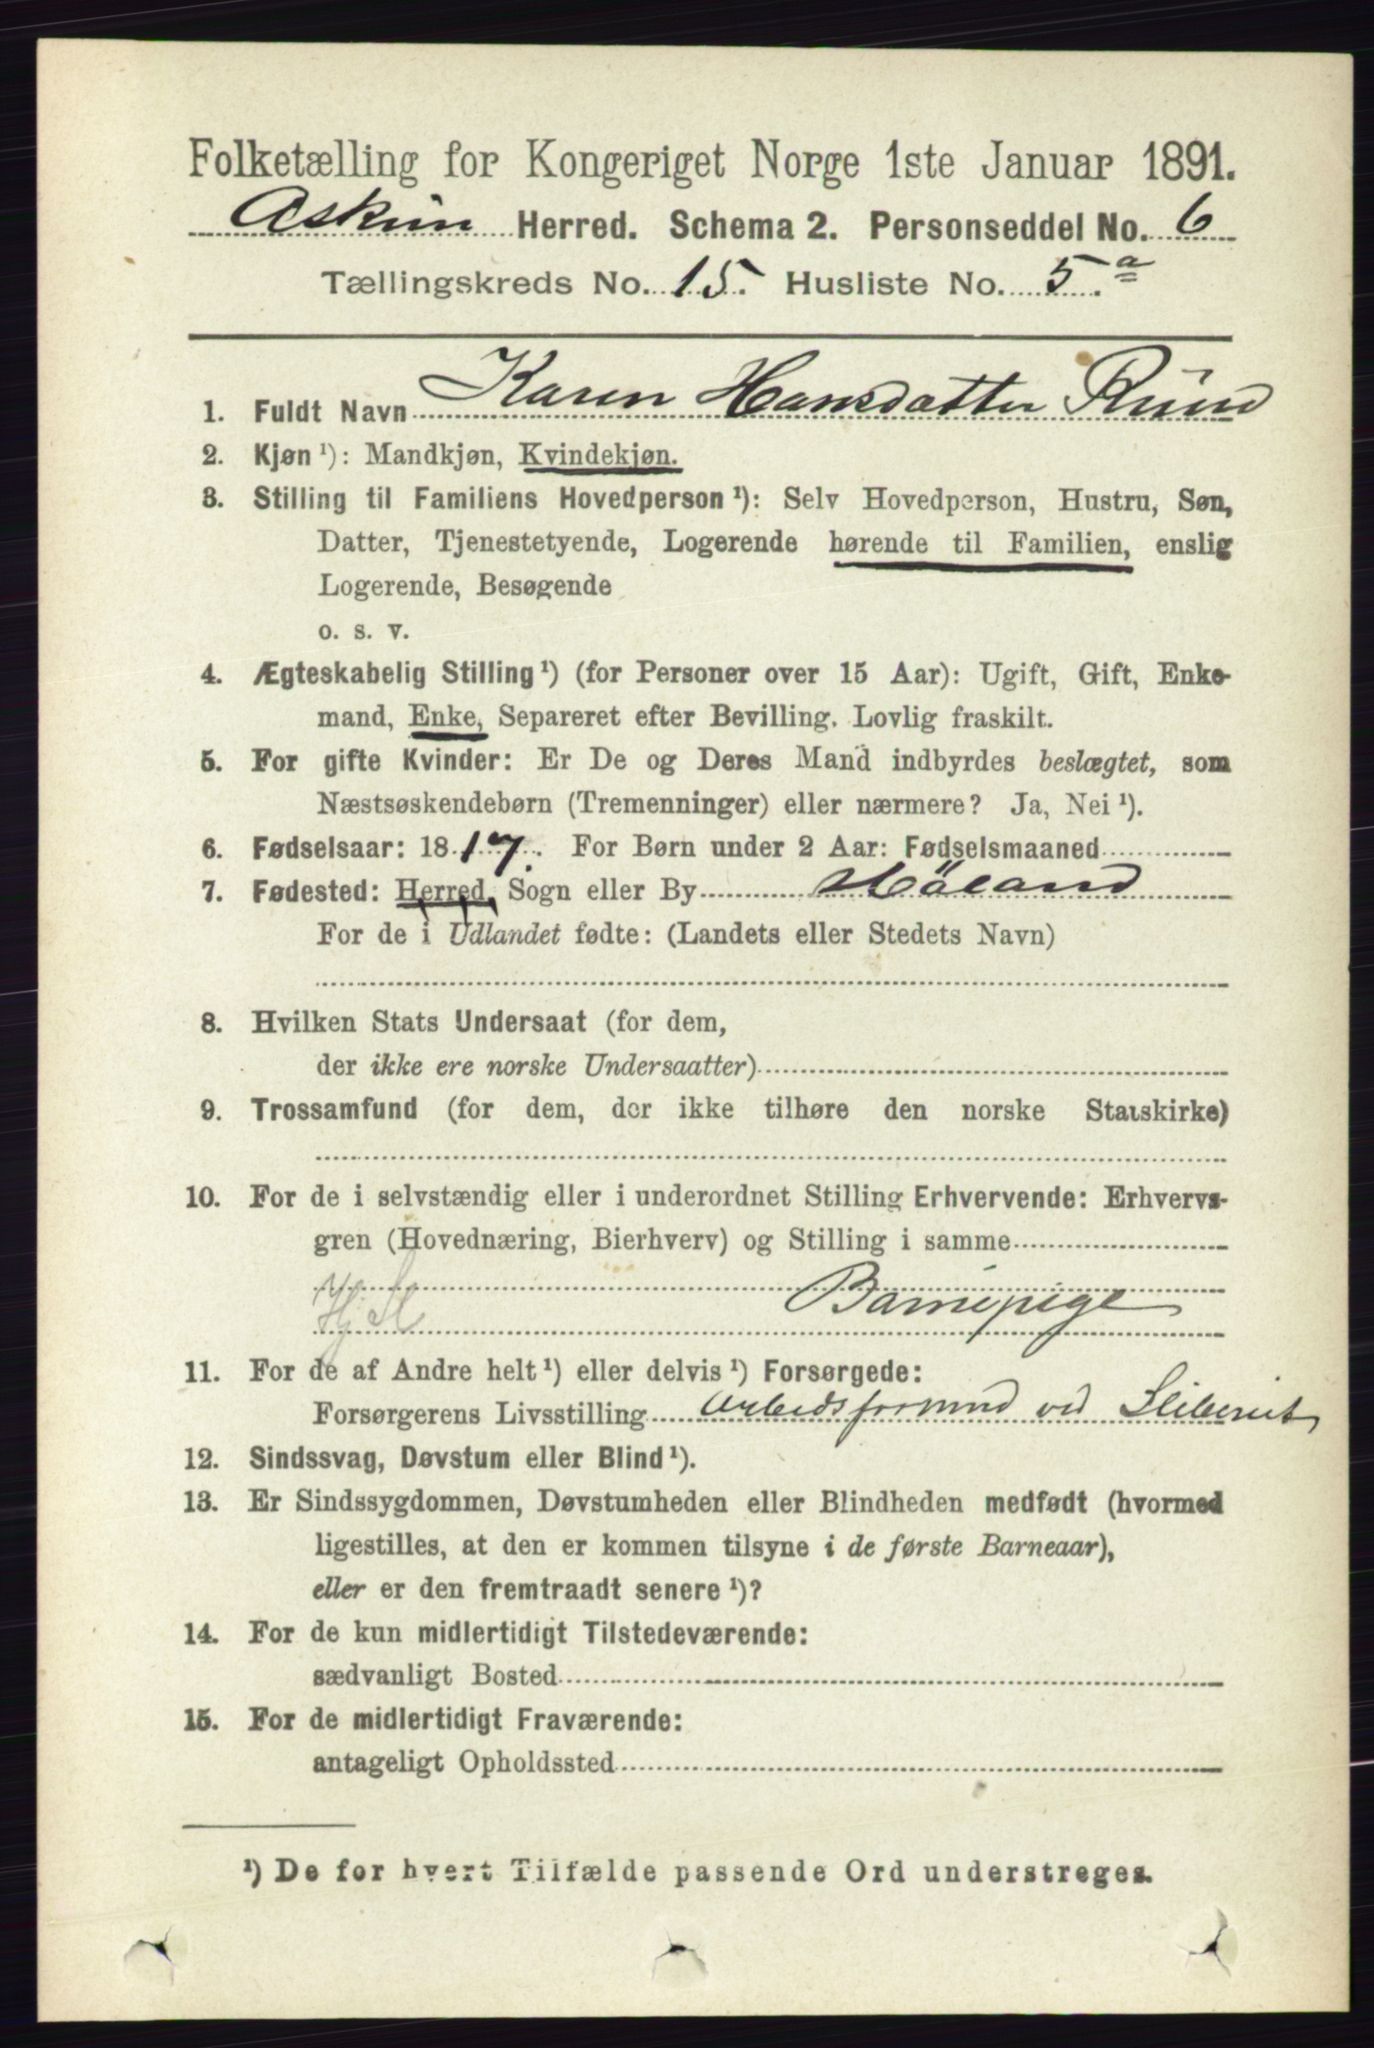 Folketælling for Kongeriget Norge 1ste Januar 1891.
Askim Herred. Schema 2. Personseddel No. 6
Tællingskreds No. 15. Husliste No. 5.a
1. Fuldt Navn Karen Hansdatter Ruud
2. Kjøn ¹): Mandkjøn, Kvindekjøn.
3. Stilling til Familiens Hovedperson ¹): Selv Hovedperson, Hustru, Søn,
Datter, Tjenestetyende, Logerende hørende til Familien, enslig
Logerende, Besøgende
o. s. v.
4. Ægteskabelig Stilling ¹) (for Personer over 15 Aar): Ugift, Gift, Enke-
mand, Enke, Separeret efter Bevilling. Lovlig fraskilt.
5. For gifte Kvinder: Er De og Deres Mand indbyrdes beslægtet, som
Næstsøskendebørn (Tremenninger) eller nærmere? Ja, Nei ¹).
6. Fødselsaar: 1817. For Børn under 2 Aar: Fødselsmaaned
7. Fødested: Herred, Sogn eller By Høland
For de i Udlandet fødte: (Landets eller Stedets Navn)
8. Hvilken Stats Undersaat (for dem,
der ikke ere norske Undersaatter)
9. Trossamfund (for dem, der ikke tilhøre den norske Statskirke)
10. For de i selvstændig eller i underordnet Stilling Erhvervende: Erhvervs-
gren (Hovednæring, Bierhverv) og Stilling i samme
Barnepige
11. For de af Andre helt ¹) eller delvis ¹) Forsørgede:
Forsørgerens Livsstilling Arbeidsformand ved Sliberiet
12. Sindssvag, Døvstum eller Blind ¹).
13. Er Sindssygdommen, Døvstumheden eller Blindheden medfødt (hvormed
ligestilles, at den er kommen tilsyne i de første Barneaar),
eller er den fremtraadt senere ¹)?
14. For de kun midlertidigt Tilstedeværende:
sædvanligt Bosted
15. For de midlertidigt Fraværende:
antageligt Opholdssted
¹) De for hvert Tilfælde passende Ord understreges.